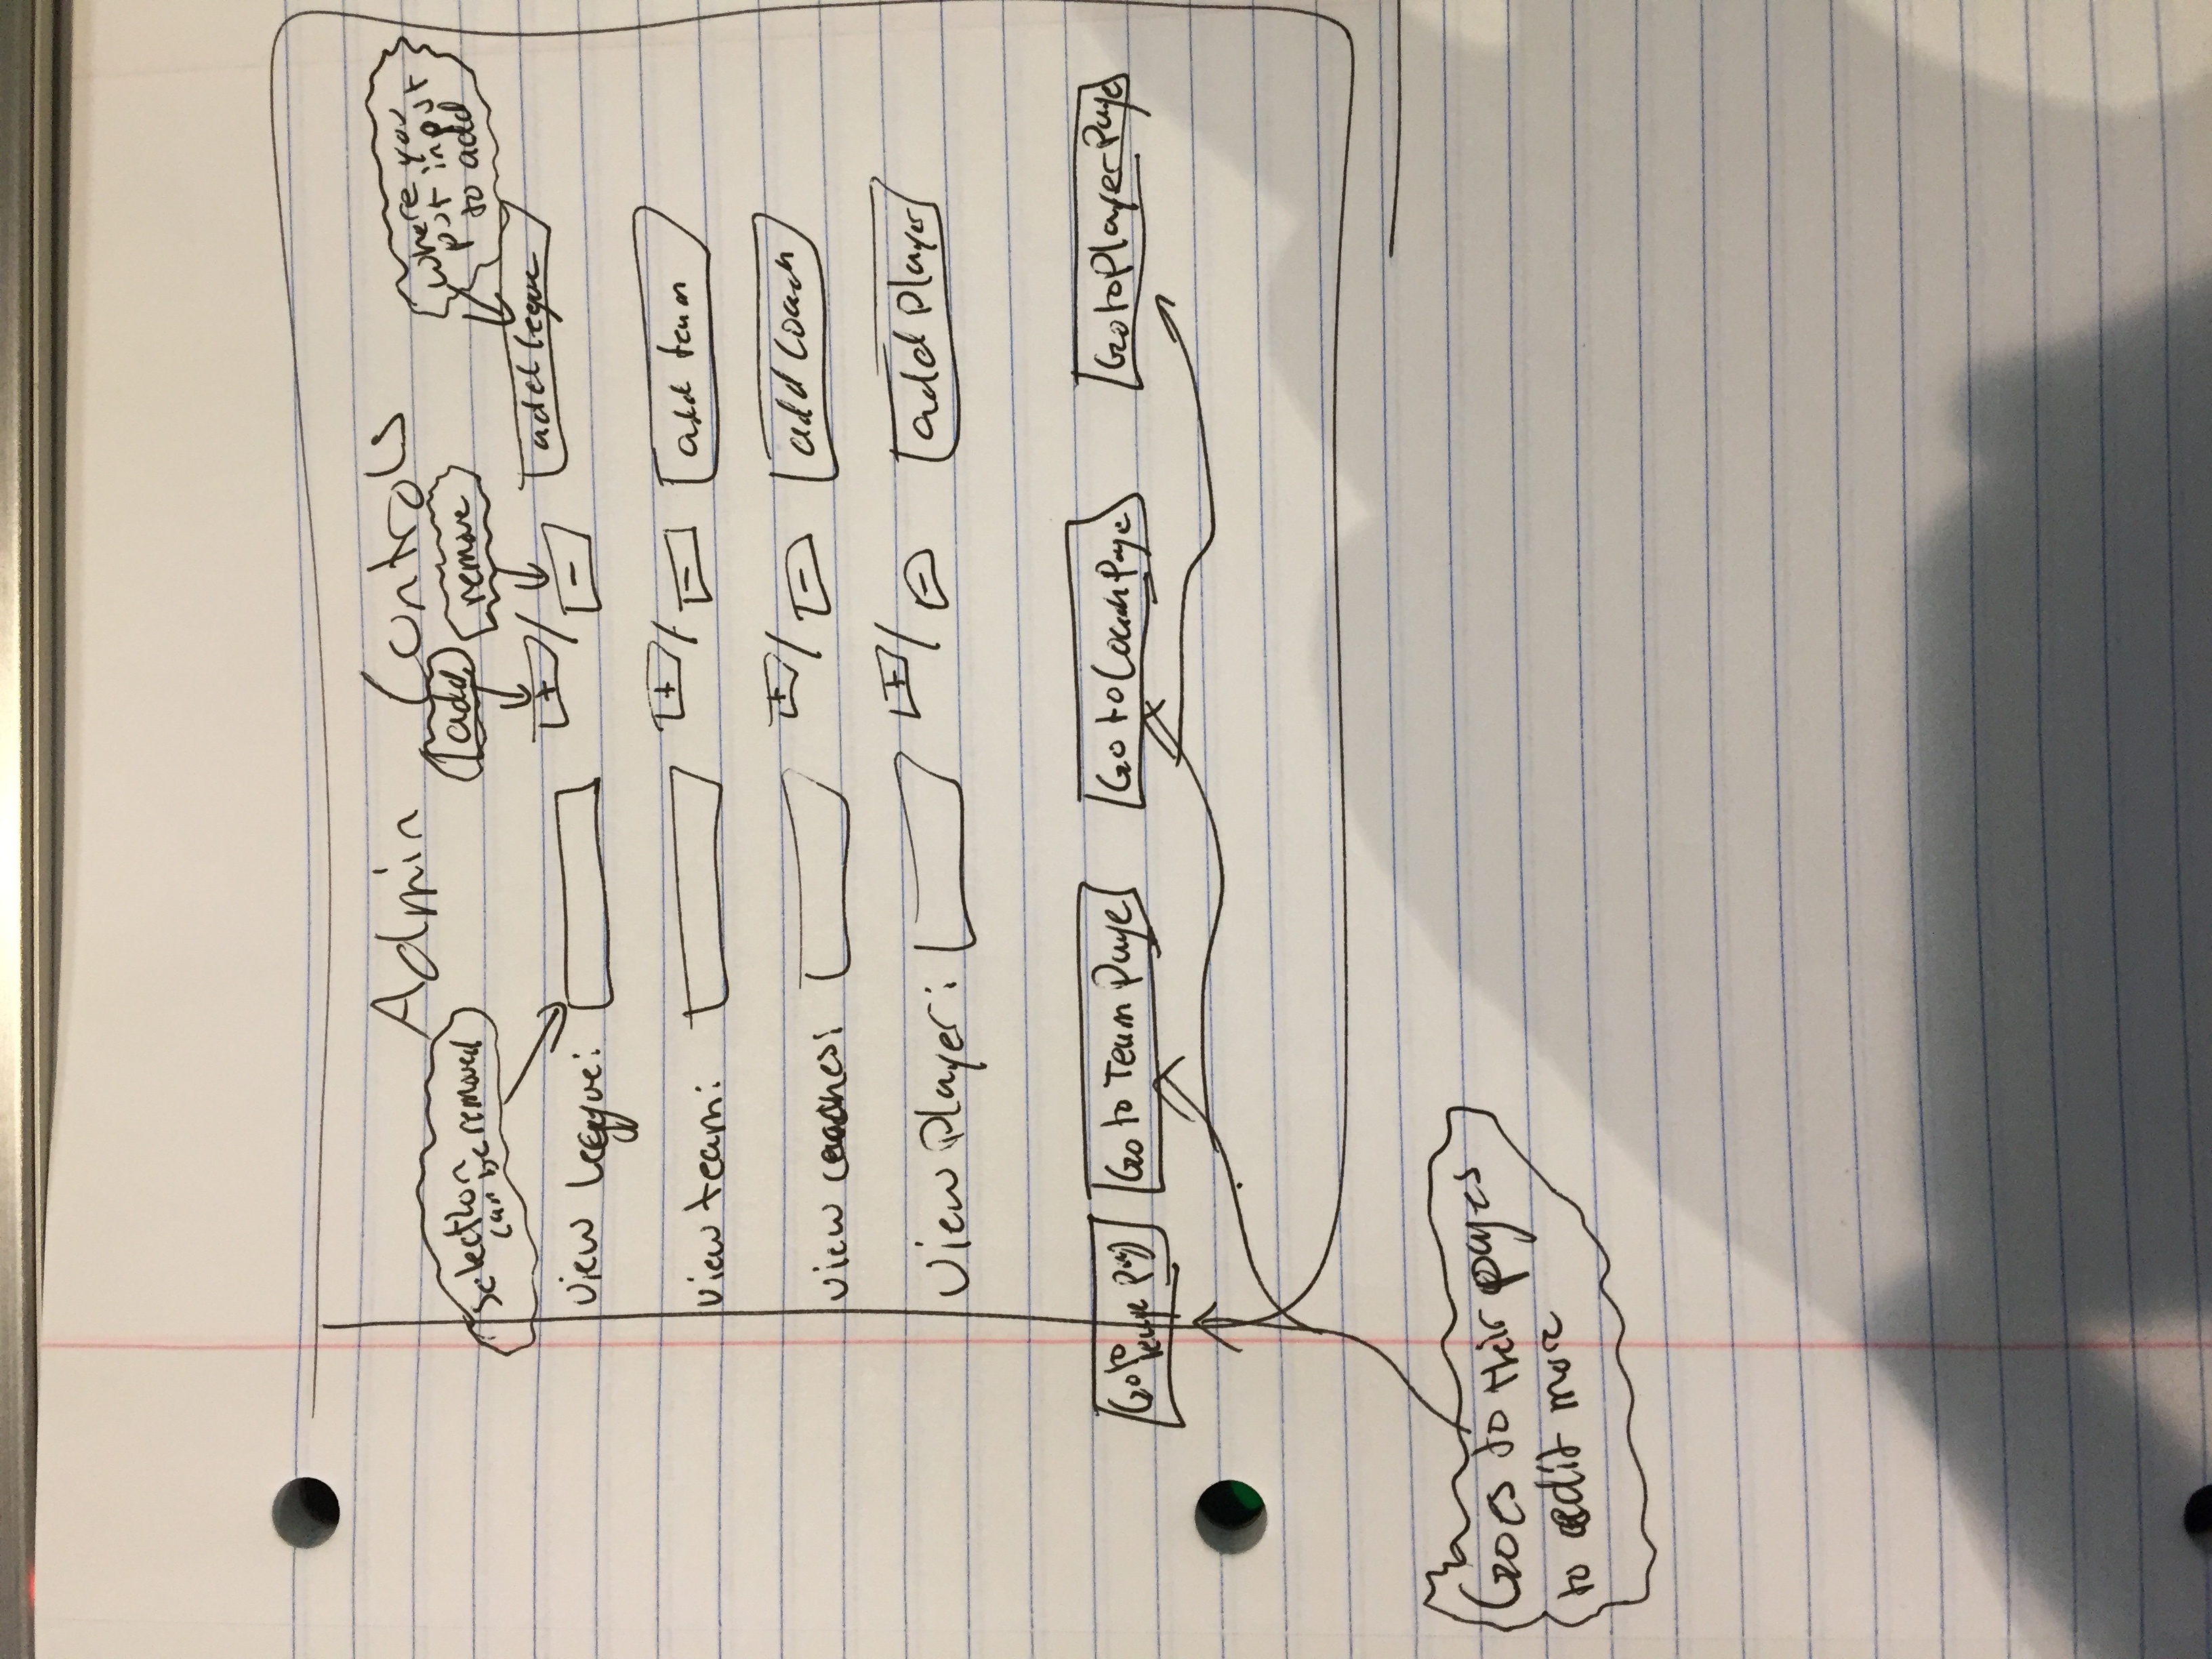 Admin Controls
Selection
can be removed
add
remove
where you
put input
to add
view league:
+ / -
add legue
view team:
+ / -
add team
view coaches:
+ / -
add coach
view Player:
+ / -
add Player
Go to
legue page
Go to Team Page
Go to Coach Page
Go to Player Page
Goes to their pages
to edit more